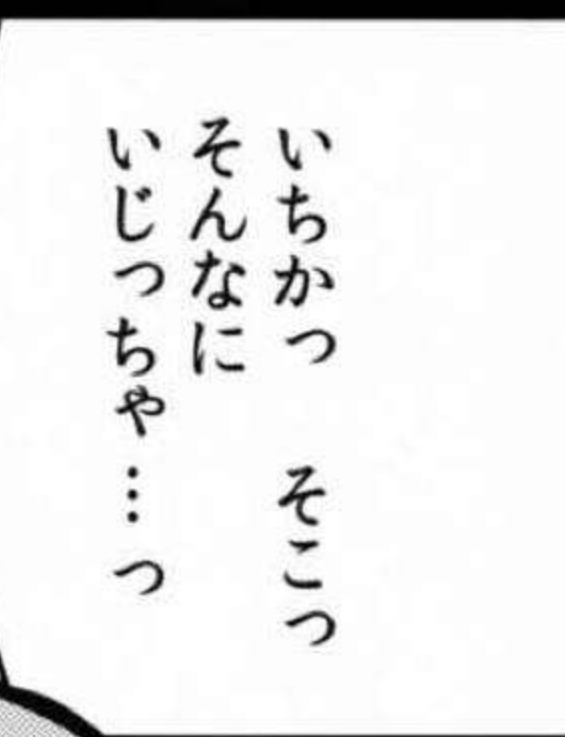 いちかっ　そこっ
そんなに
いじっちゃ…っ